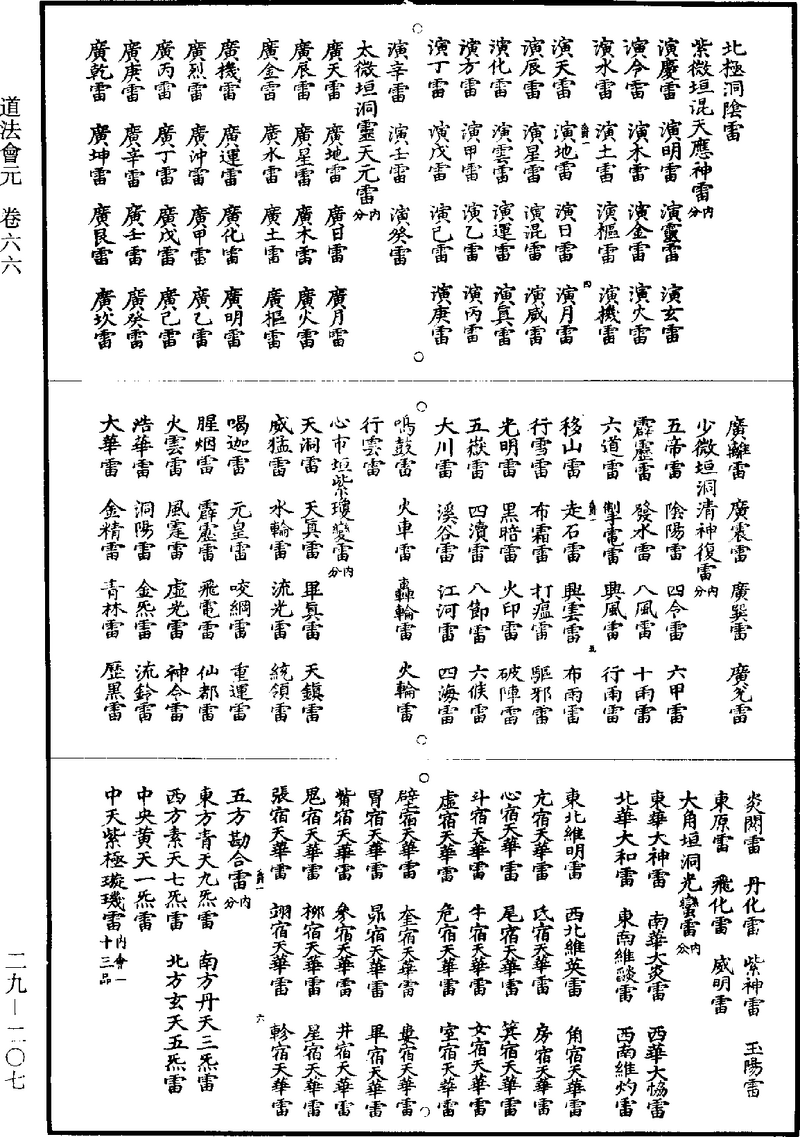 道法會元　卷六六
北極洞陰雷
紫微垣混天應神雷分內
演慶雷　演明雷　演靈雷　演玄雷
演令雷　演木雷　演金雷　演火雷
演水雷　演土雷　演樞雷　演機雷
演天雷　演地雷　演日雷　演月雷
演辰雷　演星雷　演混雷　演威雷
演化雷　演雲雷　演運雷　演真雷
演方雷　演甲雷　演乙雷　演丙雷
演丁雷　演戊雷　演己雷　演庚雷
演辛雷　演壬雷　演癸雷
太微垣洞靈天元雷分內
廣天雷　廣地雷　廣日雷　廣月雷
廣辰雷　廣星雷　廣木雷　廣火雷
廣金雷　廣水雷　廣土雷　廣樞雷
廣機雷　廣運雷　廣化雷　廣明雷
廣烈雷　廣沖雷　廣甲雷　廣乙雷
廣丙雷　廣丁雷　廣戊雷　廣己雷
廣庚雷　廣辛雷　廣壬雷　廣癸雷
廣乾雷　廣坤雷　廣艮雷　廣坎雷
廣離雷　廣震雷　廣巽雷　廣兌雷
少微垣洞清神復雷分內
五帝雷　陰陽雷　四令雷　六甲雷
霹靂雷　發水雷　八風雷　十雨雷
六道雷　掣電雷　興風雷　行雨雷
移山雷　走石雷　興雲雷　布雨雷
行雪雷　布霜雷　打瘟雷　驅邪雷
光明雷　黑暗雷　火印雷　破陣雷
五嶽雷　四瀆雷　八節雷　六候雷
大川雷　溪谷雷　江河雷　四海雷
鳴鼓雷　火車雷　轟輪雷　火輪雷
行雲雷
心市垣紫瓊變雷分內
天洞雷　天真雷　畢真雷　天鎮雷
威猛雷　水輪雷　流光雷　統領雷
喝迦雷　元皇雷　咬綱雷　重運雷
腥烟雷　霹靂雷　飛電雷　仙都雷
火雲雷　風霆雷　虛光雷　神令雷
浩華雷　洞陽雷　金炁雷　流鈴雷
大華雷　金精雷　青林雷　歷黑雷
炎關雷　丹化雷　紫神雷　玉陽雷
東原雷　飛化雷　威明雷
大角垣洞光蠻雷分內
東華大神雷　南華大炎雷　西華大恊雷
北華大和雷　東南維談雷　西南維灼雷
東北維明雷　西北維英雷　角宿天華雷
亢宿天華雷　氐宿天華雷　房宿天華雷
心宿天華雷　尾宿天華雷　箕宿天華雷
斗宿天華雷　牛宿天華雷　女宿天華雷
虛宿天華雷　危宿天華雷　室宿天華雷
壁宿天華雷　奎宿天華雷　婁宿天華雷
胃宿天華雷　昴宿天華雷　畢宿天華雷
觜宿天華雷　參宿天華雷　井宿天華雷
鬼宿天華雷　柳宿天華雷　星宿天華雷
張宿天華雷　翊宿天華雷　軫宿天華雷
五方勘合雷分內
東方青天九炁雷　南方丹天三炁雷
西方素天七炁雷　北方玄天五炁雷
中央黃天一炁雷
中天紫極璇璣雷內會一十三品
二九—二〇七